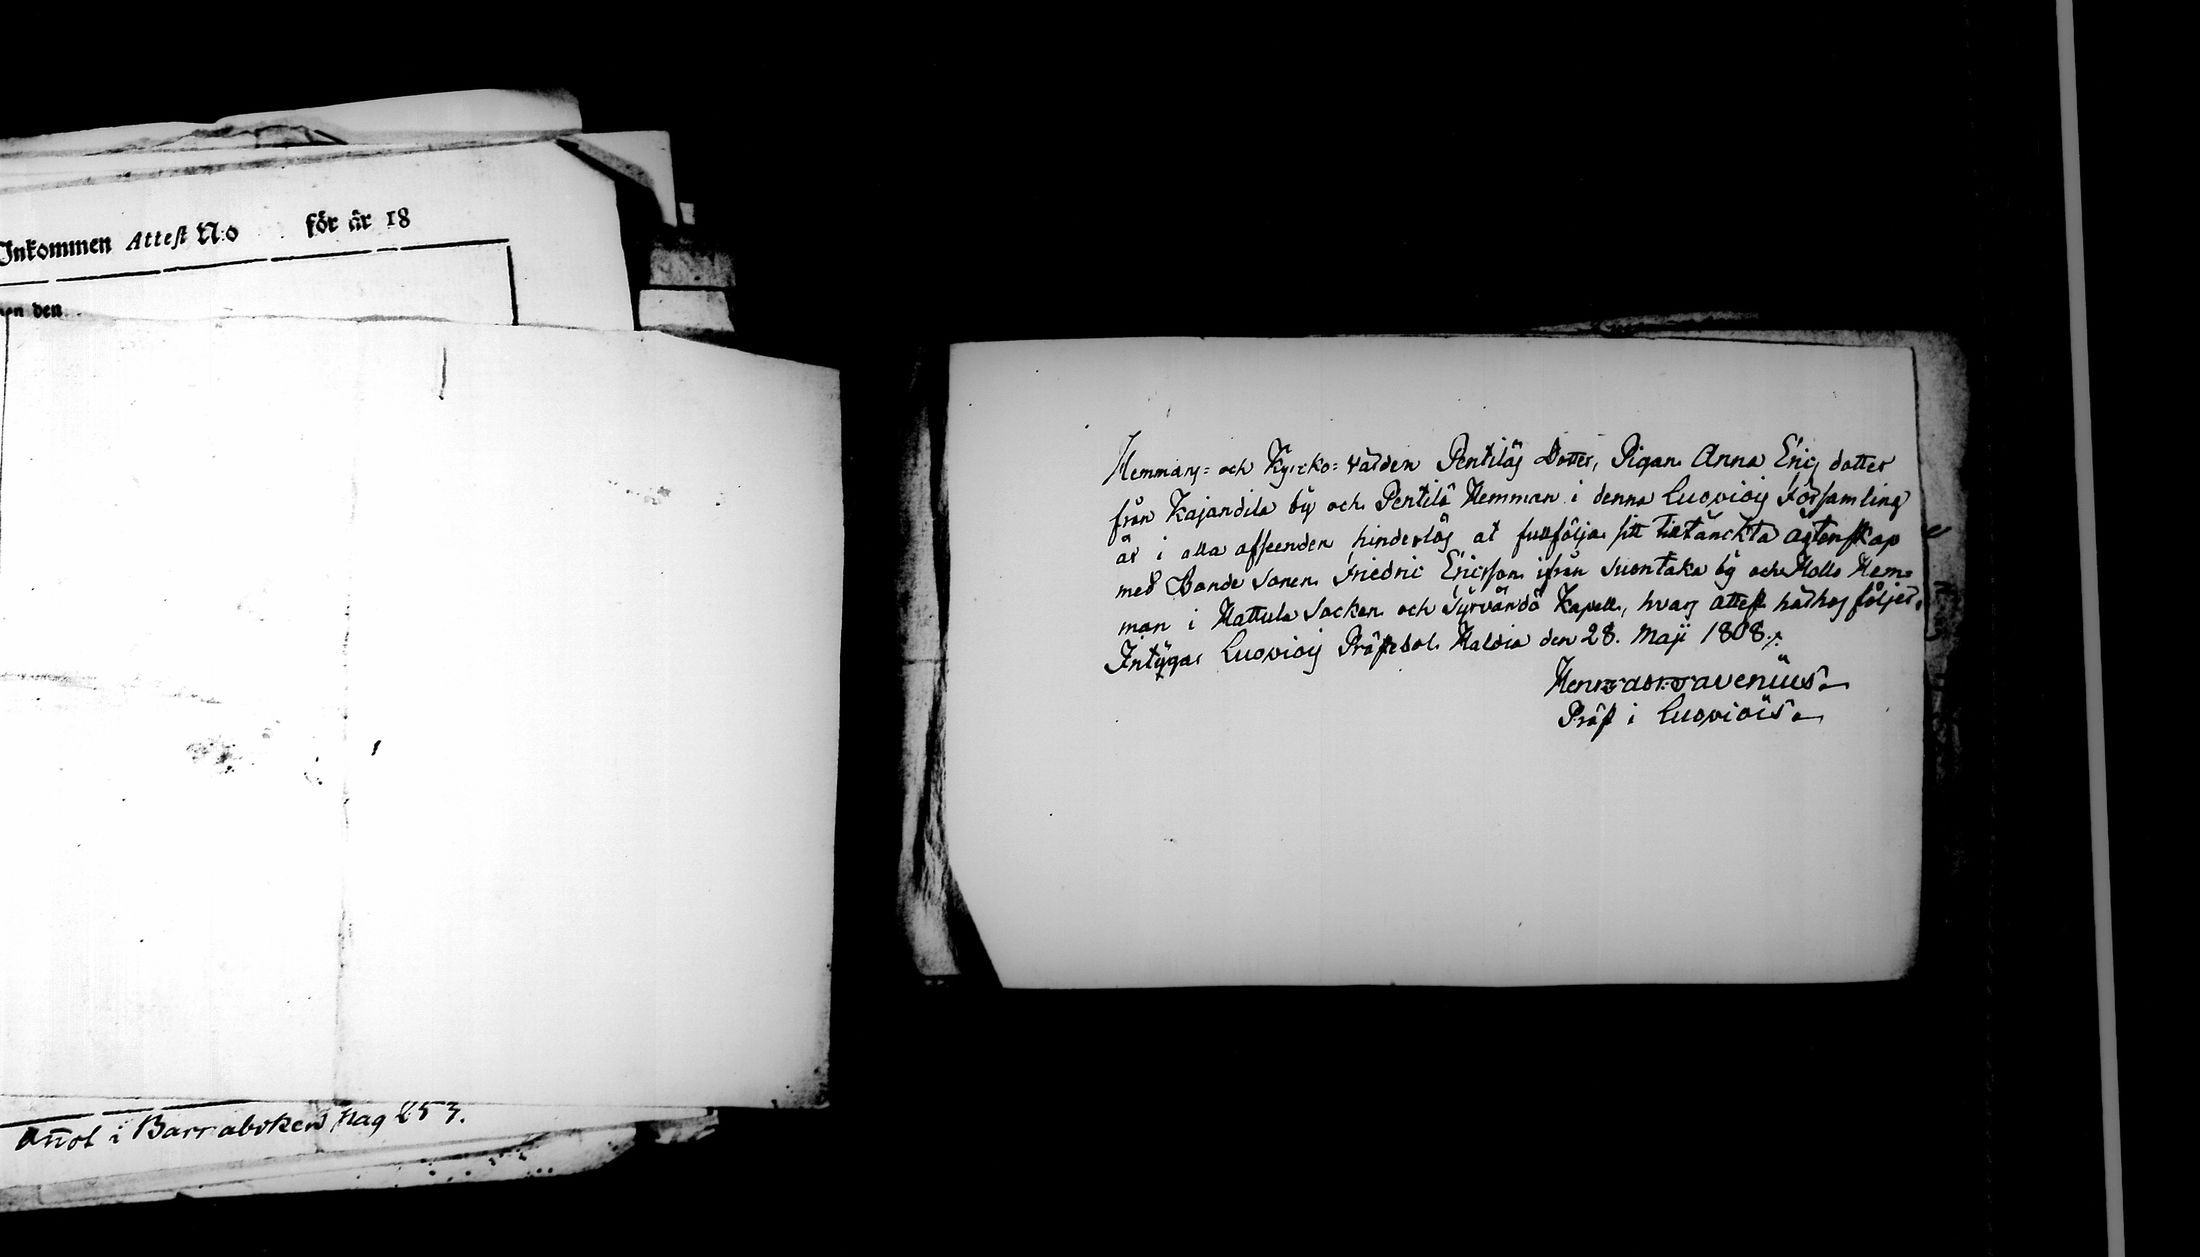 Inkommen Attest N:o för år 18
en den
Anot i Barnaboken pag 253.
Hemmans= och Kyrcko=värden Pentiläs Dotter, Pigan Anna Erics dotter
från Kajandila by och Pentilä Hemman i denna Luopiois Församling
är i alla afseenden hinderlös at fullfölja sitt tilltänckta ägtenskap
med Bonde Sonen Friedric Ericsson ifrån Suontaka by och Hollo Hem=
man i Hattula Socken och Tyrvändö Kapell, hvars attest härhos följer,
Intygar Luopiois Prästebol Haltia den 28. Maji 1808.
Henr: Gavenius.
Präst i Luopiois.